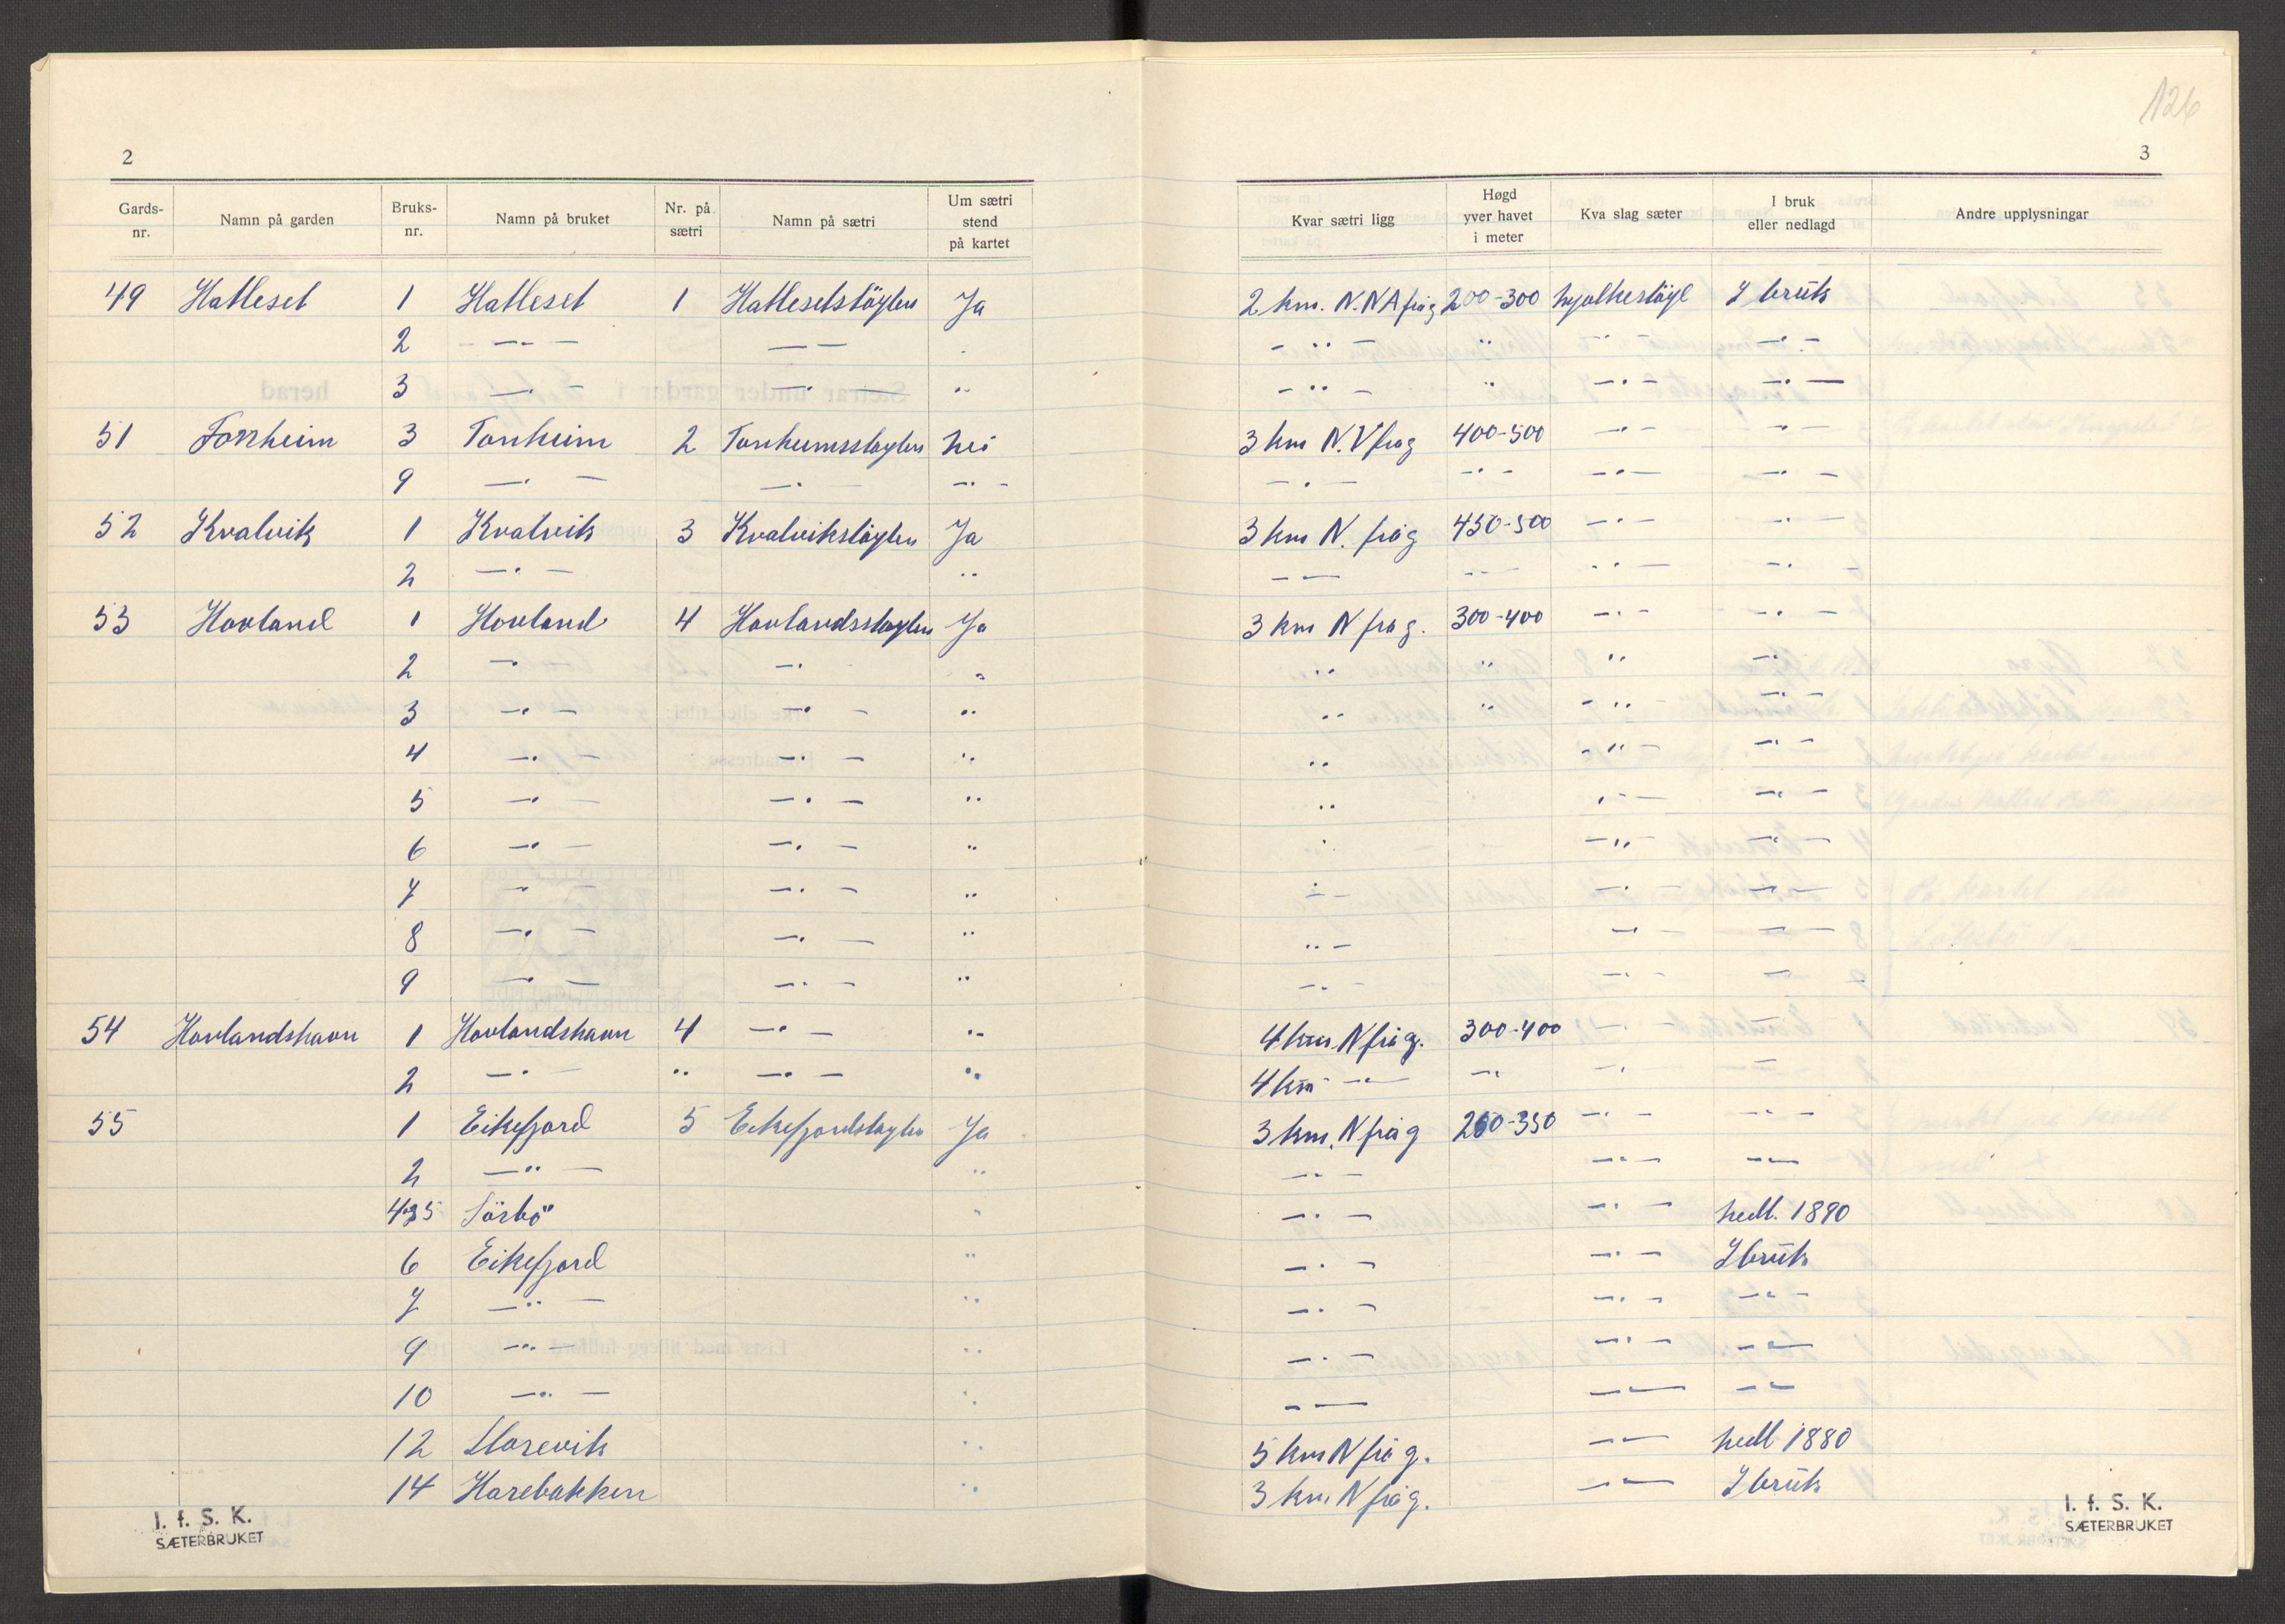 126
2
3
Gards-nr. Namn på garden Bruks-nr. Namn på bruket Nr. på sætri Namn på sætri Um sætri stend på kartet Kvar sætri ligg Høgd yver havet i meter Kva slag sæter I bruk eller nedlagd Andre upplysningar
49 Hatleset 1 Hatleset 1 Hatlesetstöylen Ja 2 km. N.NA frå g 200-300 mjolkestöyl I bruk
2 — " — — — - " — " — " — — " —
3 — " — — " — " - " — " — " — — " —
51 Tonheim 3 Tonheim 2 Tonheimsstøylen nei 3 km N.V frå g 400-500 — " — — " —
9 — " — — " — — " — — " — — " — — " — — " —
52 Kvalvik 1 Kvalvik 3 Kvalvikstøylen Ja 3 km N. frå g 450-500 — " — — " —
2 — " — " — — — " — — " — — " —
53 Hovland 1 Hovland 4 Hovlandsstøylen Ja 3 km N frå g. 300-400 — " — — " —
2 — " — " " " " " — "
3 — " — — " — " " " — " — " —
4 — " — — " — " " — " — — " —
5 — " — — " — " " " — — — " —
6 — " — — " — " " — " — — " —
7 — " — — " — " — " — — " — — " —
8 — " — — " — " " — — " — — " —
9 — " — — " — " — " — — " — — " —
54 Hovlandshavn 1 Hovlandshavn 4 — " — " 4 km. N frå g. 300-400 — " — — " —
2 — " — " — " — " 4 km — " — — " — " — — " —
55 1 Eikefjord 5 Eikefjordstøylen Ja 3 km. N frå g 250-350 — " — — " —
2 — " — " — " — — " — — " —
4 og 5 Sörbö " — " — — " — nedl. 1890
6 Eikefjord " — " — — " — I bruk
7 — " — " — " — — " — — " —
9 — " — " — " — — " — — " —
10 — " — " — — — " — — " —
12 Storevik " 5 km N frå g. — " — nedl 1880
14 Harebakken " 3 km. N frå g. — " — I bruk
I. f. S. K.
SÆTERBRUKET
I. f. S. K.
SÆTERBRUKET